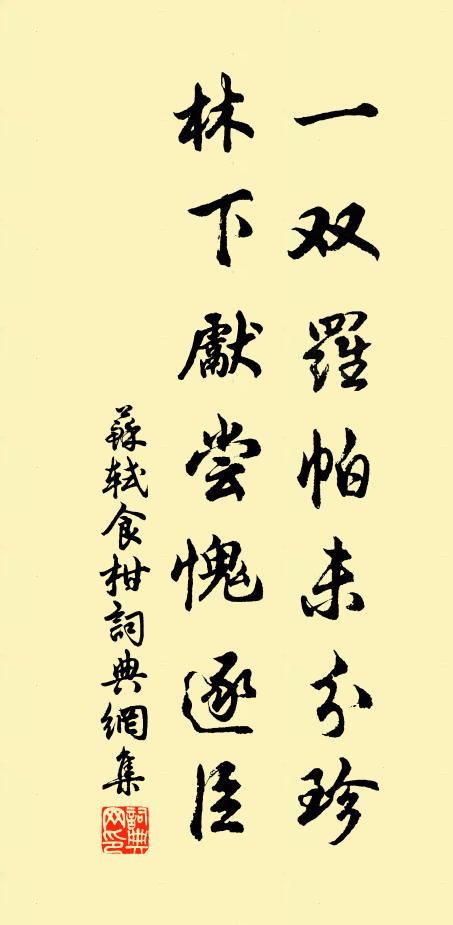 一双羅帕未分珍
林下獻尝愧逐臣
蘇軾食柑詞典網集
詞典网印